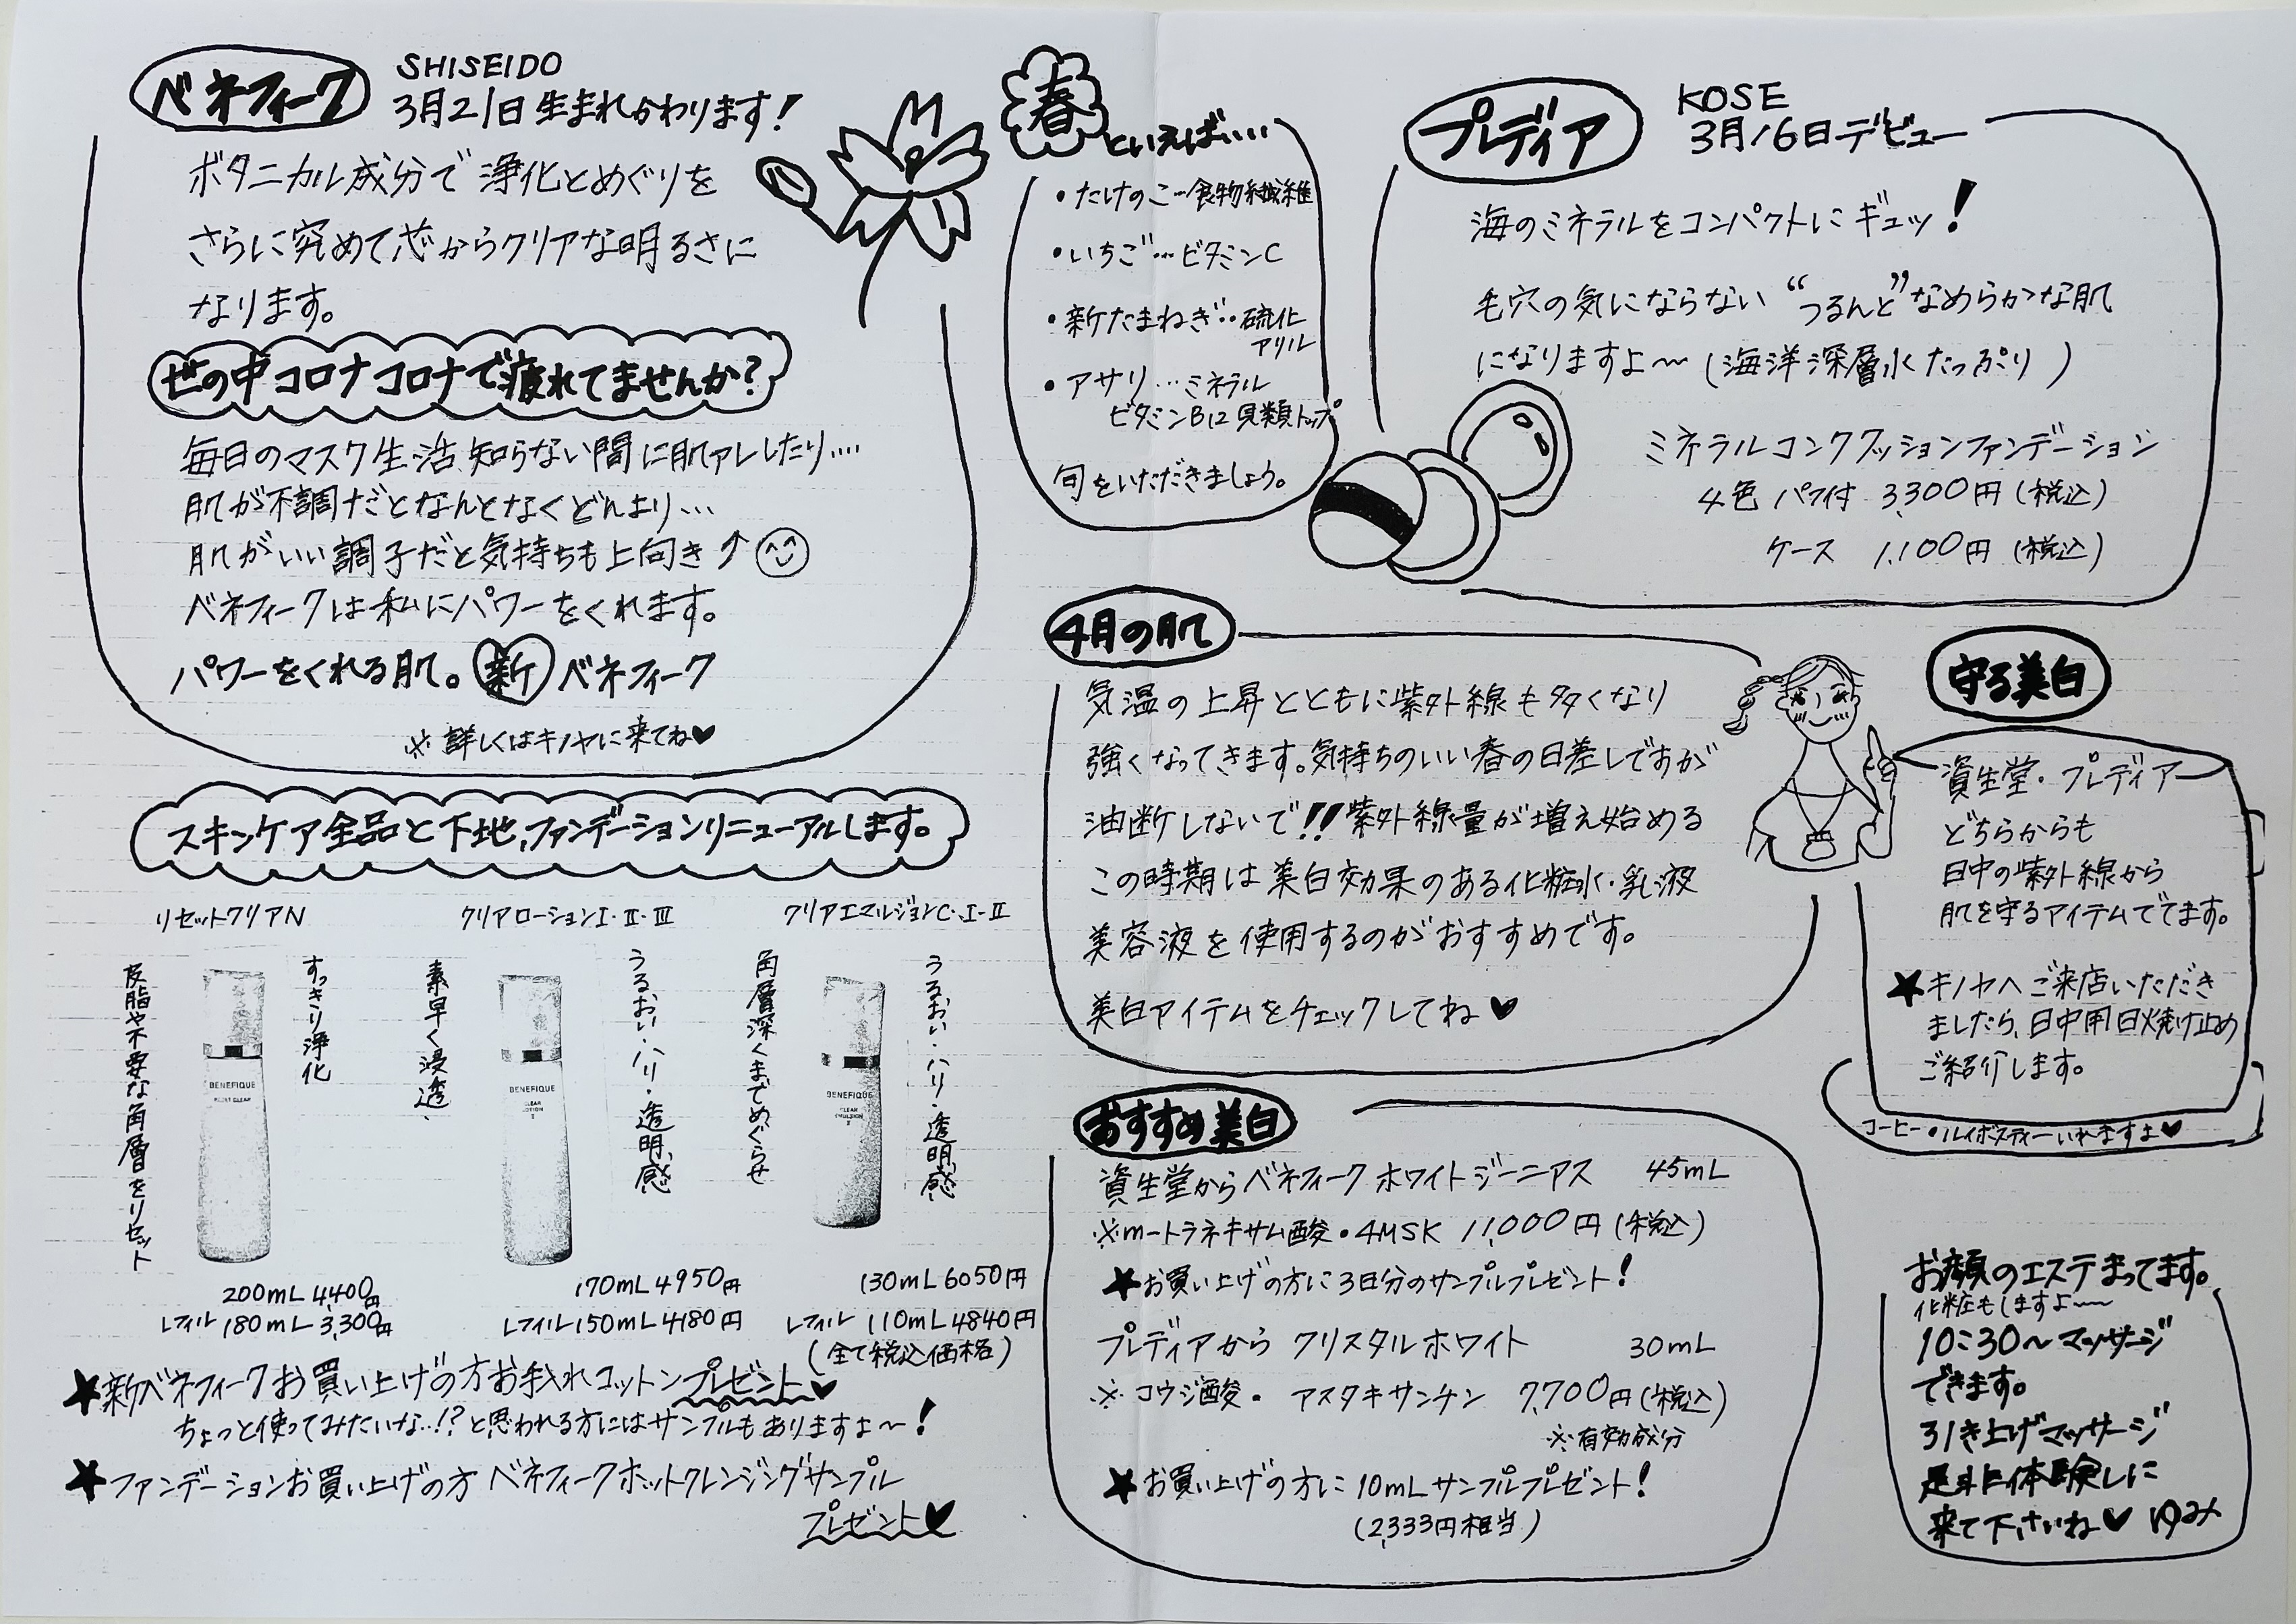 ベネフィーク
SHISEIDO
3月21日生まれかわります!
ボタニカル成分で浄化とめぐりを
さらに究めて芯からクリアな明るさに
なります。
世の中コロナコロナで疲れてませんか?
毎日のマスク生活知らない間に肌アレしたり....
肌が不調だとなんとなくどんより...
肌がいい調子だと気持ちも上向き↑
ベネフィークは私にパワーをくれます。
パワーをくれる肌。新ベネフィーク
※詳しくはキノヤに来てね♥
スキンケア全品と下地、ファンデーションリニューアルします。
リセットクリアN
皮脂や不要な角層をリセット
すっきり浄化
BENEFIQUE
RESET CLEAR
200mL 4,400円
レフィル 180mL 3,300円
クリアローションI・II・III
素早く浸透、
うるおい・ハリ・透明感
BENEFIQUE
CLEAR
LOTION
170mL 4950円
レフィル 150mL 4180円
クリアエマルジョンC・I・II
角層深くまでめぐらせ
うるおい・ハリ・透明感
BENEFIQUE
CLEAR
EMULSION
130mL 6050円
レフィル 110mL 4840円
(全て税込価格)
★新ベネフィークお買い上げの方お手入れコットンプレゼント♥
ちょっと使ってみたいな..!?と思われる方にはサンプルもありますよ〜!
★ファンデーションお買い上げの方 ベネフィークホットクレンジングサンプル
プレゼント♥
春といえば....
・たけのこ…食物繊維
・いちご…ビタミンC
・新たまねぎ…硫化
アリル
・アサリ…ミネラル
ビタミンB12 貝類トップ
旬をいただきましょう。
プレディア
KOSE
3月16日デビュー
海のミネラルをコンパクトにギュッ!
毛穴の気にならない“つるんと”なめらかな肌
になりますよ〜(海洋深層水たっぷり)
ミネラルコンククッションファンデーション
4色 パフ付 3,300円(税込)
ケース 1,100円(税込)
4月の肌
気温の上昇とともに紫外線も多くなり
強くなってきます。気持ちのいい春の日差しですが
油断しないで!!紫外線量が増え始める
この時期は美白効果のある化粧水・乳液
美容液を使用するのがおすすめです。
美白アイテムをチェックしてね♥
守る美白
資生堂・プレディア
どちらからも
日中の紫外線から
肌を守るアイテムでてます。
★キノヤへご来店いただき
ましたら、日中用日焼け止め
ご紹介します。
コーヒー・ルイボスティーいれますよ♥
おすすめ美白
資生堂からベネフィーク ホワイトジーニアス 45mL
※m-トラネキサム酸・4MSK 11,000円(税込)
★お買い上げの方に3日分のサンプルプレゼント!
プレディアから クリスタルホワイト 30mL
※コウジ酸・アスタキサンチン 7,700円(税込)
※有効成分
★お買い上げの方に10mLサンプルプレゼント!
(2,333円相当)
お顔のエステまってます。
化粧もしますよ〜〜
10:30〜マッサージ
できます。
引き上げマッサージ
是非体験しに
来て下さいね♥ ゆみ